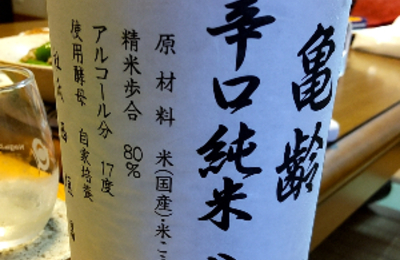 亀齢
辛口純米
原材料 米(国産)・米こ
精米歩合 80%
アルコール分 17度
使用酵母 自家培養